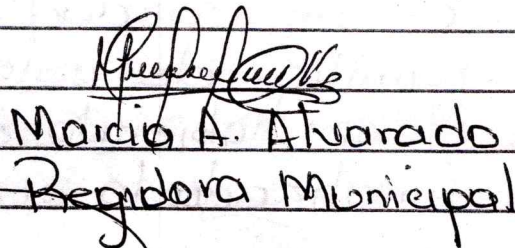 Marcia A. Alvarado
Regidora Municipal